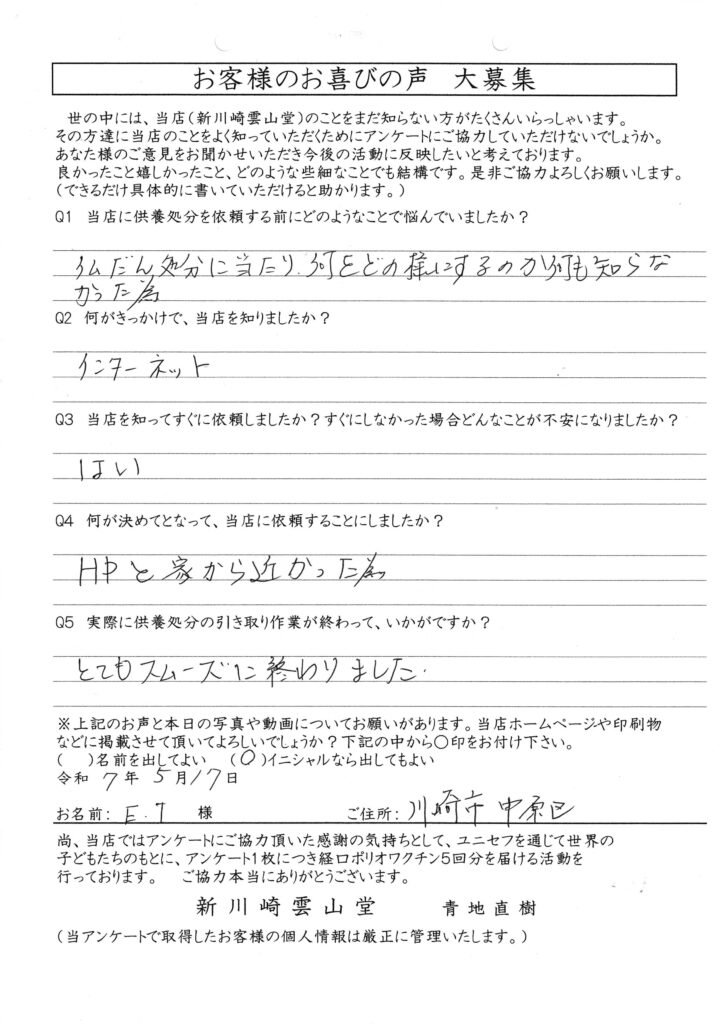 お客様のお喜びの声　大募集
世の中には、当店(新川崎雲山堂)のことをまだ知らない方がたくさんいらっしゃいます。
その方達に当店のことをよく知っていただくためにアンケートにご協力していただけないでしょうか。
あなた様のご意見をお聞かせいただき今後の活動に反映したいと考えております。
良かったこと嬉しかったこと、どのような些細なことでも結構です。是非ご協力よろしくお願いします。
(できるだけ具体的に書いていただけると助かります。)
Q1　当店に供養処分を依頼する前にどのようなことで悩んでいましたか？
仏だん処分に当たり、何をどの様にするのか何も知らな
かった為
Q2　何がきっかけで、当店を知りましたか？
インターネット
Q3　当店を知ってすぐに依頼しましたか？すぐにしなかった場合どんなことが不安になりましたか？
はい
Q4　何が決めてとなって、当店に依頼することにしましたか？
HPと家から近かった為
Q5　実際に供養処分の引き取り作業が終わって、いかがですか？
とてもスムーズに終わりました.
※上記のお声と本日の写真や動画についてお願いがあります。当店ホームページや印刷物
などに掲載させて頂いてよろしいでしょうか？下記の中から〇印をお付け下さい。
(　)名前を出してよい　(○)イニシャルなら出してもよい
令和 7 年 5 月 17 日
お名前: E.T 様　ご住所: 川崎市中原区
尚、当店ではアンケートにご協力頂いた感謝の気持ちとして、ユニセフを通じて世界の
子どもたちのもとに、アンケート1枚につき経口ポリオワクチン5回分を届ける活動を
行っております。　ご協力本当にありがとうございます。
新川崎雲山堂　青地直樹
(当アンケートで取得したお客様の個人情報は厳正に管理いたします。)